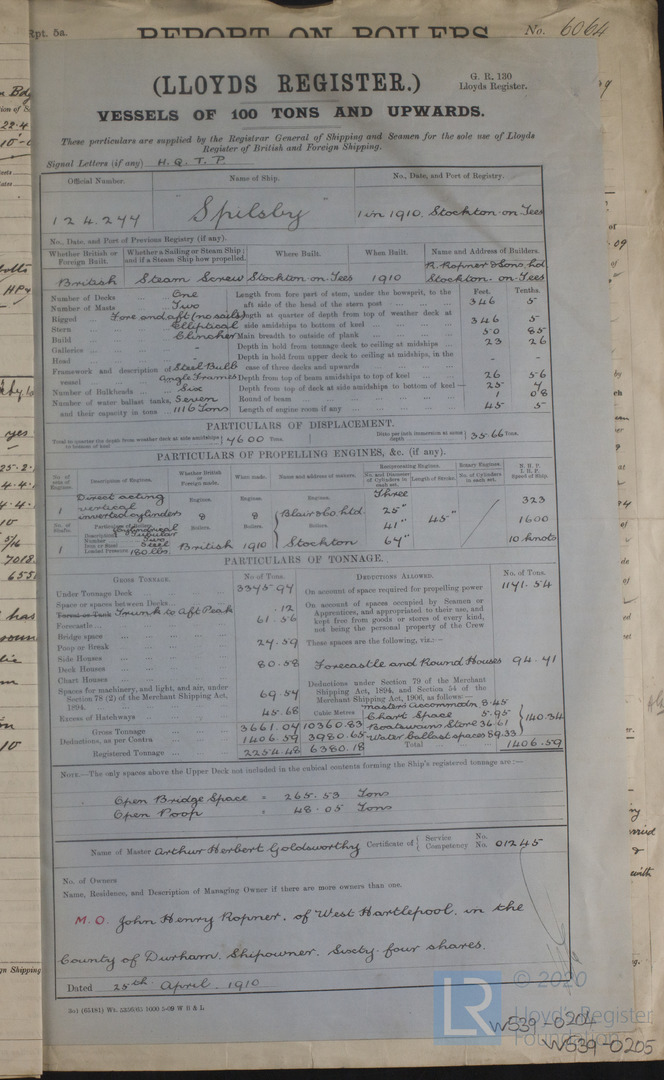 Rpt. 5a.
REPORT ON BOILERS
No. 6064
(LLOYDS REGISTER.)
G. R. 130
Lloyds Register.
VESSELS OF 100 TONS AND UPWARDS.
These particulars are supplied by the Registrar General of Shipping and Seamen for the sole use of Lloyds
Register of British and Foreign Shipping.
Signal Letters (if any) H. Q. T. P.
Official Number. Name of Ship. No., Date, and Port of Registry.
124,244 "Spilsby" 1 in 1910. Stockton-on-Tees
No., Date, and Port of Previous Registry (if any).
Whether British or Foreign Built. Whether a Sailing or Steam Ship; and if a Steam Ship how propelled. Where Built. When Built. Name and Address of Builders.
British Steam Screw Stockton-on-Tees 1910 R. Ropner & Sons, Ltd Stockton-on-Tees
Feet. Tenths.
Number of Decks One
Number of Masts Two
Length from fore part of stem, under the bowsprit, to the aft side of the head of the stern post 346 5
Rigged Fore and aft (no sails)
Stern Elliptical
Length at quarter of depth from top of weather deck at side amidships to bottom of keel 346 5
Build Clincher
Main breadth to outside of plank 50 85
Galleries -
Depth in hold from tonnage deck to ceiling at midships 23 26
Head -
Depth in hold from upper deck to ceiling at midships, in the case of three decks and upwards - -
Framework and description of vessel Steel Bulb Angle Frames
Depth from top of beam amidships to top of keel 26 56
Number of Bulkheads Six
Depth from top of deck at side amidships to bottom of keel 25 7
Number of water ballast tanks, and their capacity in tons Seven 1116 Tons
Round of beam 1 08
Length of engine room if any 45 5
PARTICULARS OF DISPLACEMENT.
Total to quarter the depth from weather deck at side amidships to bottom of keel 7600 Tons.
Ditto per inch immersion at same depth 35.66 Tons.
PARTICULARS OF PROPELLING ENGINES, &c. (if any).
No. of sets of Engines. Description of Engines. Whether British or Foreign made. When made. Name and address of makers. Reciprocating Engines. Rotary Engines. N. H. P. I. H. P. Speed of Ship.
No. and Diameter of Cylinders in each set. Length of Stroke. No. of Cylinders in each set.
1 Direct acting vertical inverted cylinders
Engines. Engines. Engines.
B B Blair & Co. Ltd
Three
25"
41" 45"
64"
323
1600
10 knots
No. of Shafts. Particulars of Boilers. Boilers. Boilers. Boilers.
Description Cylindrical Tubular
Number Two
Iron or Steel Steel
Loaded Pressure 180 lbs
1 British 1910 Stockton
PARTICULARS OF TONNAGE.
GROSS TONNAGE. No. of Tons. DEDUCTIONS ALLOWED. No. of Tons.
Under Tonnage Deck 3345.97
On account of space required for propelling power 1171.54
Space or spaces between Decks
Turret or Trunk Trunk to Aft Peak .12
Forecastle 61.56
On account of spaces occupied by Seamen or Apprentices, and appropriated to their use, and kept free from goods or stores of every kind, not being the personal property of the Crew
Bridge space
Poop or Break 27.59
These spaces are the following, viz.:—
Side Houses
Deck Houses 80.58
Forecastle and Round Houses 94.71
Chart Houses
Spaces for machinery, and light, and air, under Section 78 (2) of the Merchant Shipping Act, 1894. 69.54
Deductions under Section 79 of the Merchant Shipping Act, 1894, and Section 54 of the Merchant Shipping Act, 1906, as follows:—
Excess of Hatchways 45.68
Cubic Metres
Masters Accommodn 8.45
Chart Space 5.95
Boatswains Store 36.61
Water ballast spaces 89.33
140.34
Gross Tonnage 3661.04 10360.83
Deductions, as per Contra 1406.59 3980.65
Total 1406.59
Registered Tonnage 2254.48 6380.18
NOTE.—The only spaces above the Upper Deck not included in the cubical contents forming the Ship's registered tonnage are:—
Open Bridge Space = 265.53 Tons
Open Poop = 48.05 Tons
Name of Master Arthur Herbert Goldsworthy Certificate of { Service No. Competency No. 01245
No. of Owners
Name, Residence, and Description of Managing Owner if there are more owners than one.
M.O. John Henry Ropner, of West Hartlepool, in the
County of Durham. Shipowner. Sixty four shares.
Dated 25th April. 1910
© 2020
LR
Lloyd's Register
Foundation
W539-0204
W539-0205